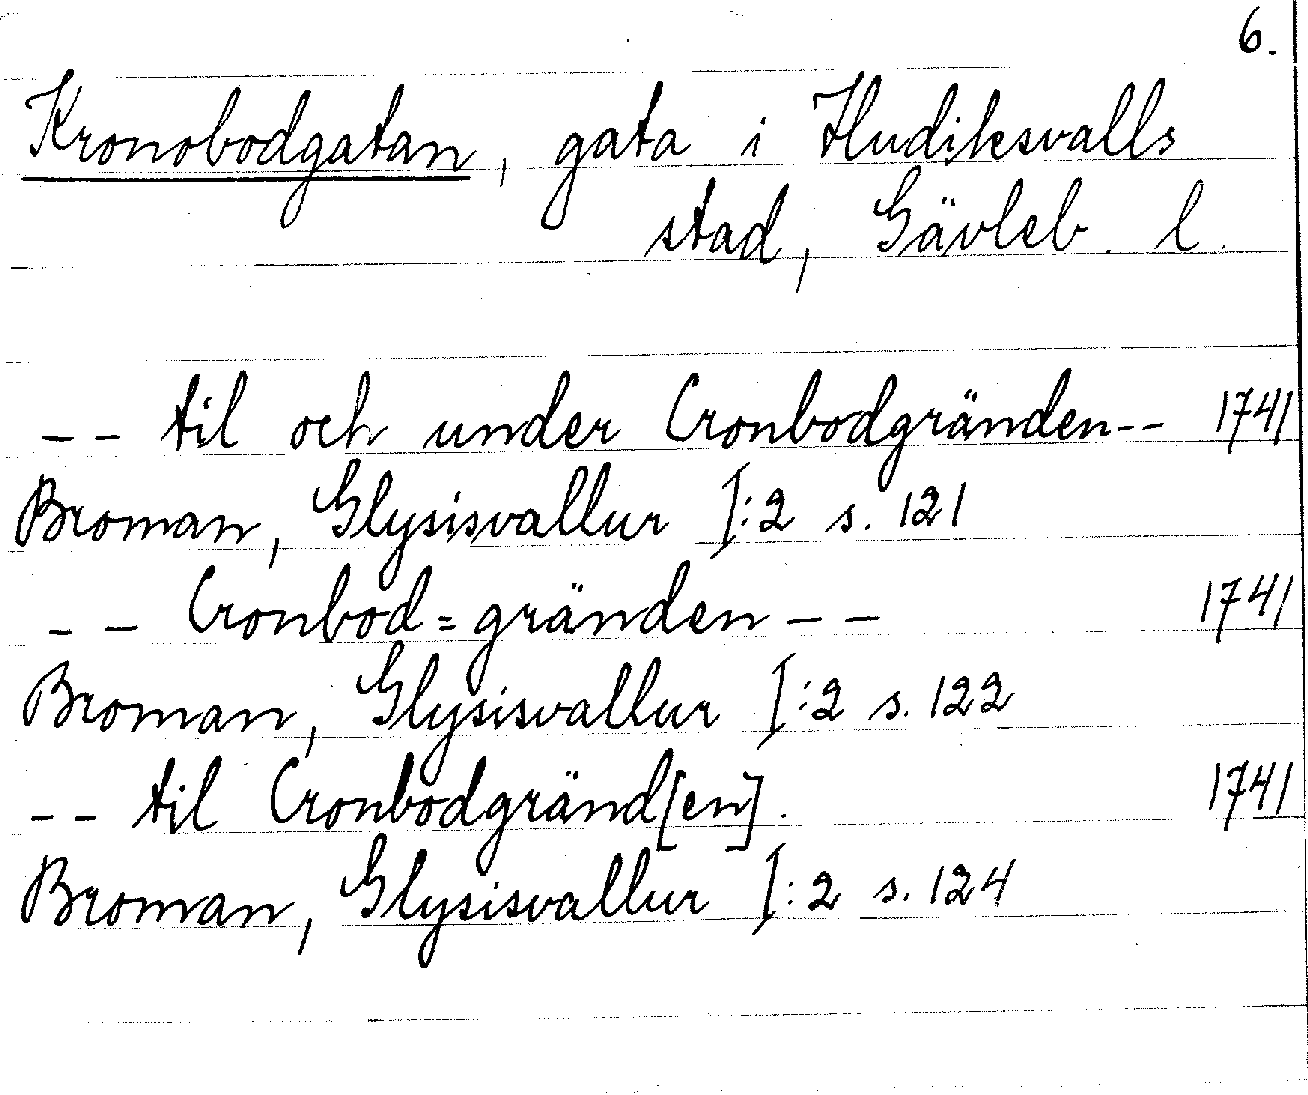 6.
Kronobodgatan, gata i Hudiksvalls
stad, Gävleb. l.
-- til och under Cronbodgränden-- 1741
Broman, Glysisvallur I:2 s. 121
-- Cronbod=gränden -- 1741
Broman, Glysisvallur I:2 s. 122
-- til Cronbodgränd[en]. 1741
Broman, Glysisvallur I:2 s. 124